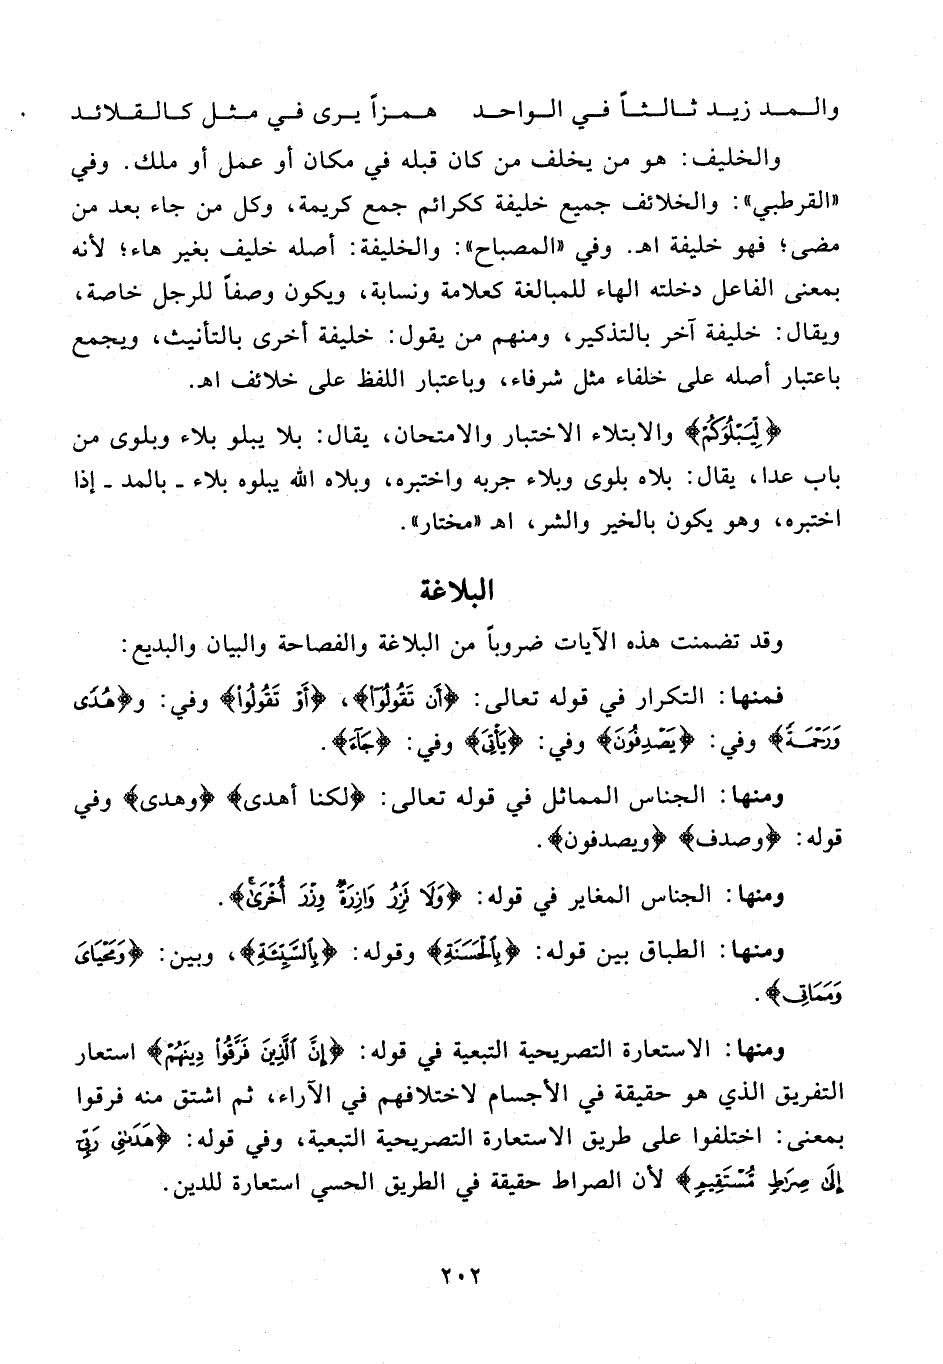 والـمـد زيـد ثـالـثـاً فـي الـواحـد همـزاً يـرى فـي مـثـل كـالـقـلائـد
والخليف: هو من يخلف من كان قبله في مكان أو عمل أو ملك. وفي
«القرطبي»: والخلائف جميع خليفة ككرائم جمع كريمة، وكل من جاء بعد من
مضى؛ فهو خليفة اهـ. وفي «المصباح»: والخليفة: أصله خليف بغير هاء؛ لأنه
بمعنى الفاعل دخلته الهاء للمبالغة كعلامة ونسابة، ويكون وصفاً للرجل خاصة،
ويقال: خليفة آخر بالتذكير، ومنهم من يقول: خليفة أخرى بالتأنيث، ويجمع
باعتبار أصله على خلفاء مثل شرفاء، وباعتبار اللفظ على خلائف اهـ.
﴿لِّيَبْلُوَكُمْ﴾ والابتلاء الاختبار والامتحان، يقال: بلا يبلو بلاء وبلوى من
باب عدا، يقال: بلاه بلوى وبلاء جربه واختبره، وبلاه الله يبلوه بلاء ـ بالمد ـ إذا
اختبره، وهو يكون بالخير والشر، اهـ «مختار».
البلاغة
وقد تضمنت هذه الآيات ضروباً من البلاغة والفصاحة والبيان والبديع:
فمنها: التكرار في قوله تعالى: ﴿أَن تَقُولُوٓا۟﴾، ﴿أَوْ تَقُولُوا۟﴾ وفي: و﴿هُدًى
وَرَحْمَةٌ﴾ وفي: ﴿يَصْدِفُونَ﴾ وفي: ﴿يَأْتِىَ﴾ وفي: ﴿جَآءَ﴾.
ومنها: الجناس المماثل في قوله تعالى: ﴿لكنا أهدى﴾ ﴿وهدى﴾ وفي
قوله: ﴿وصدف﴾ ﴿ويصدفون﴾.
ومنها: الجناس المغاير في قوله: ﴿وَلَا تَزِرُ وَازِرَةٌ وِزْرَ أُخْرَىٰ﴾.
ومنها: الطباق بين قوله: ﴿بِٱلْحَسَنَةِ﴾ وقوله: ﴿بِٱلسَّيِّئَةِ﴾، وبين: ﴿وَمَحْيَاىَ
وَمَمَاتِى﴾.
ومنها: الاستعارة التصريحية التبعية في قوله: ﴿إِنَّ ٱلَّذِينَ فَرَّقُوا۟ دِينَهُمْ﴾ استعار
التفريق الذي هو حقيقة في الأجسام لاختلافهم في الآراء، ثم اشتق منه فرقوا
بمعنى: اختلفوا على طريق الاستعارة التصريحية التبعية، وفي قوله: ﴿هَدَىٰنِى رَبِّىٓ
إِلَىٰ صِرَٰطٍ مُّسْتَقِيمٍ﴾ لأن الصراط حقيقة في الطريق الحسي استعارة للدين.
٢٠٢